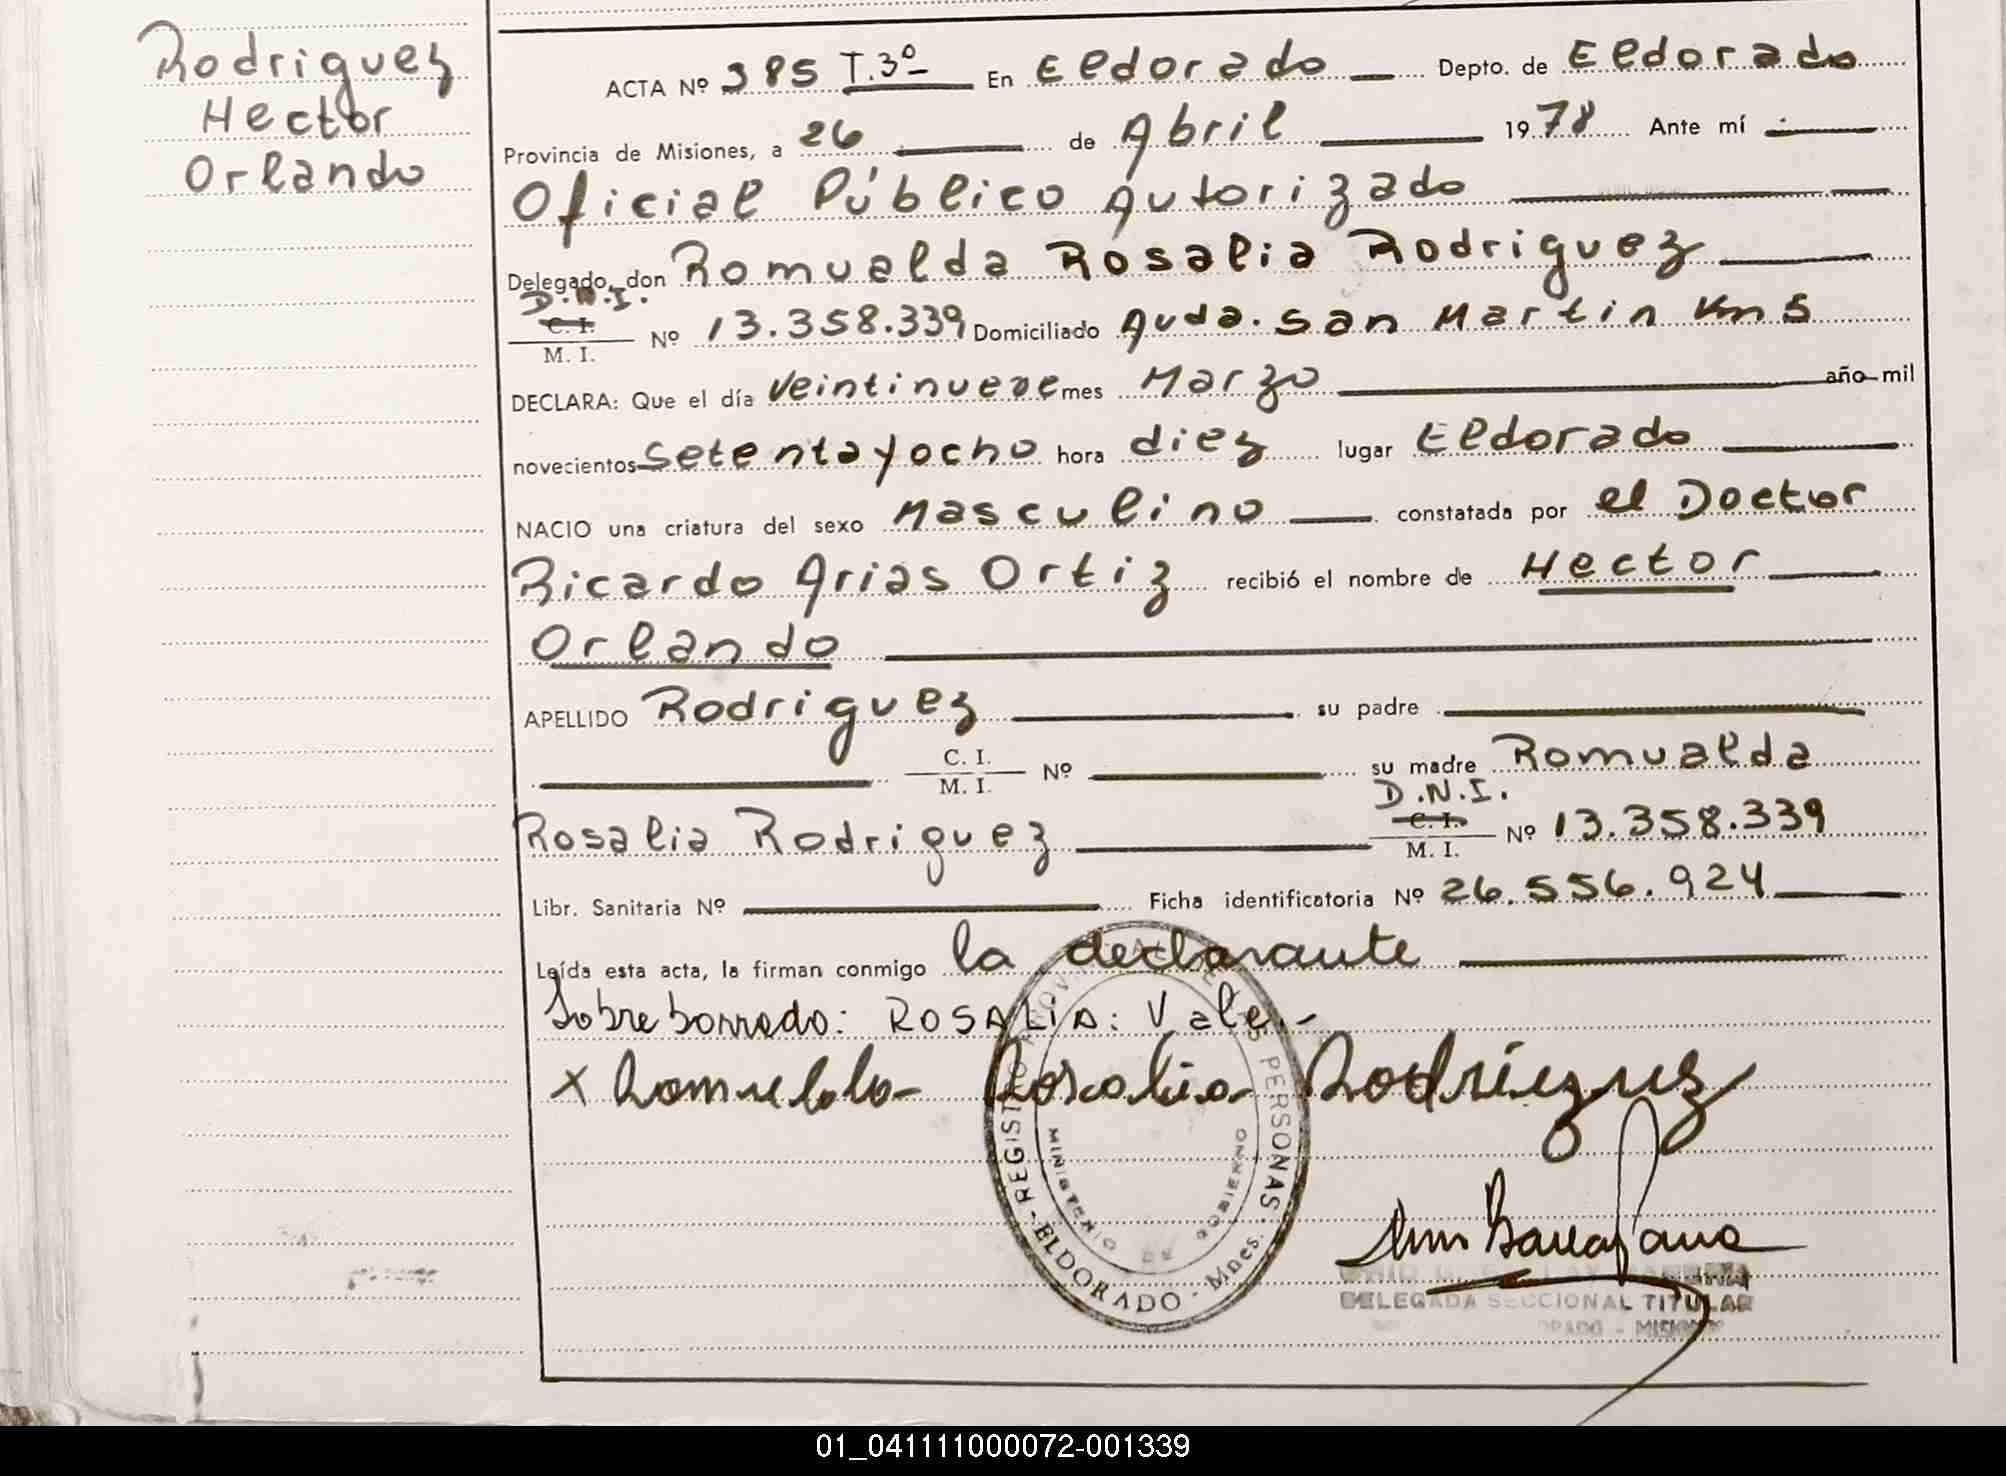 Rodriguez
Hector
Orlando
ACTA Nº 385 T.3º En Eldorado Depto. de Eldorado
Provincia de Misiones, a 26 de Abril 1978 Ante mí
Oficial Público Autorizado
Delegado, don Romualda Rosalia Rodriguez
D.N.I.
C. I.
M. I. Nº 13.358.339 Domiciliado Avda. San Martin Km 5
DECLARA: Que el día Veintinueve mes Marzo año mil
novecientos setentayocho hora diez lugar Eldorado
NACIO una criatura del sexo Masculino constatada por el Doctor
Ricardo Arias Ortiz recibió el nombre de Hector
Orlando
APELLIDO Rodriguez su padre
C. I.
M. I. Nº su madre Romualda
D.N.I.
Rosalia Rodriguez C. I.
M. I. Nº 13.358.339
Libr. Sanitaria Nº Ficha identificatoria Nº 26.556.924
Leída esta acta, la firman conmigo la declarante
Sobre borrado: ROSALIA: Vale.-
x Romualda Rosalia Rodriguez
REGISTRO PROVINCIAL DE LAS PERSONAS
MINISTERIO DE GOBIERNO
ELDORADO - Mnes.
DELEGADA SECCIONAL TITULAR
01_041111000072-001339